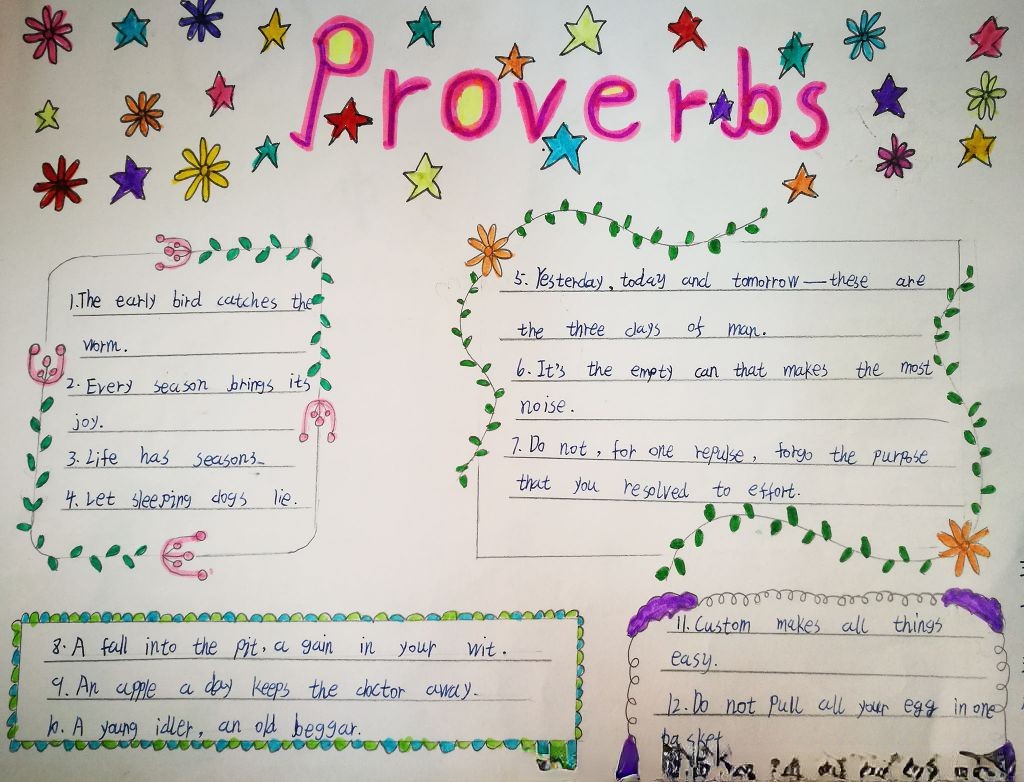 Proverbs
1.The early bird catches the
worm.
2. Every season brings its
joy.
3. Life has seasons.
4. Let sleeping dogs lie.
5. Yesterday, today and tomorrow—these are
the three days of man.
6. It's the empty can that makes the most
noise.
7. Do not, for one repulse, forgo the purpose
that you resolved to effort.
8. A fall into the pit, a gain in your wit.
9. An apple a day keeps the doctor away.
10. A young idler, an old beggar.
11. Custom makes all things
easy.
12. Do not Pull all your egg in one
basket